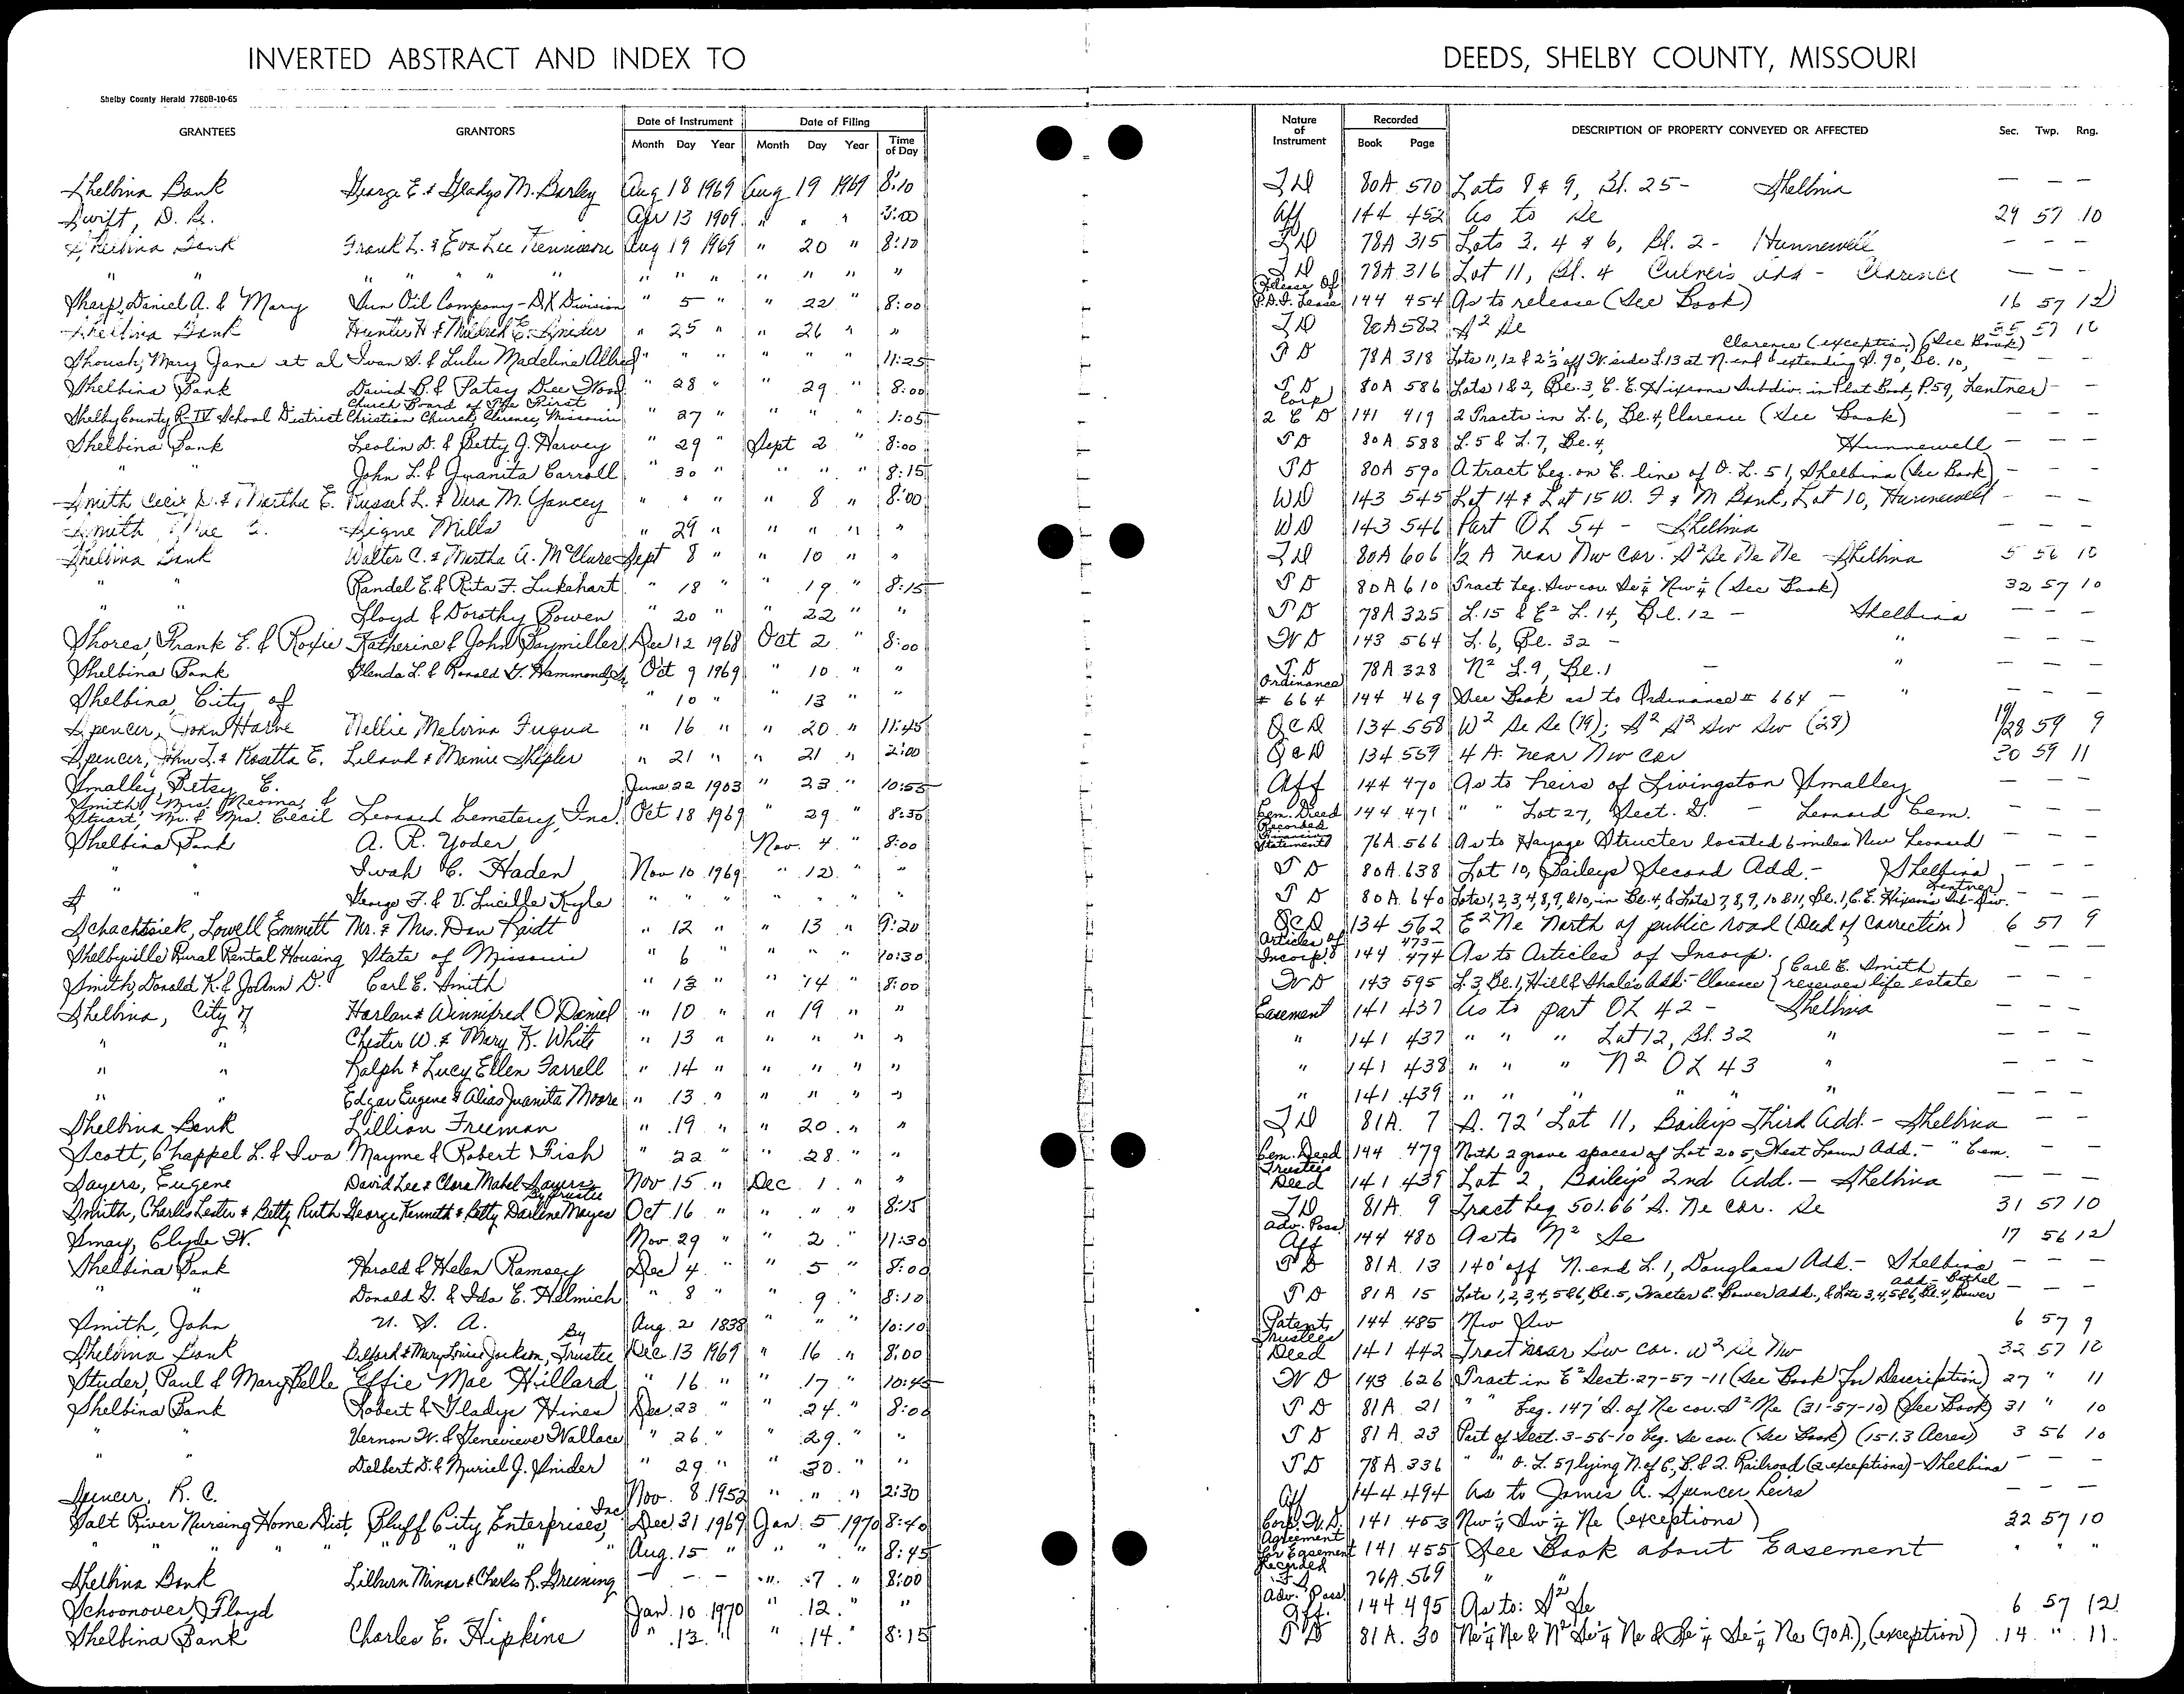 INVERTED ABSTRACT AND INDEX TO DEEDS, SHELBY COUNTY, MISSOURI
Shelby County Herald 7760B-10-65
GRANTEES GRANTORS Date of Instrument Date of Filing Nature of Instrument Recorded DESCRIPTION OF PROPERTY CONVEYED OR AFFECTED Sec. Twp. Rng.
Month Day Year Month Day Year Time of Day Book Page
Shelbina Bank George E. & Gladys M. Barley Aug 18 1969 Aug 19 1969 8:10 TD 80A 570 Lots 8 & 9, Bl. 25 - Shelbina — — —
Swift, D. Apr 13 1909 " " " 3:00 Aff 144 452 As to Se 29 57 10
Shelbina Bank Frank L. & Eva Lee Aug 19 1969 " 20 " 8:10 TD 78A 315 Lots 3, 4 & 6, Bl. 2 - Hunnewell — — —
" " " " " " " " " " " " " TD 78A 316 Lot 11, Bl. 4 Culver's Add - Clarence — — —
Sharp, Daniel A. & Mary Sun Oil Company - DX Division " 5 " " 22 " 8:00 Release Of Lease 144 454 As to release (See Book) 16 57 12
Shelbina Bank Hunter H & Mildred E. Snider " 25 " " 26 " " TD 80A 582 S² Se 35 57 10
Shoush, Mary Jane et al Ivan S. & Lulu Madeline " " " " " " 11:25 TD 78A 318 Lots 11, 12 & 2⅓' off W. side L.13 at N. end & extending S. 90', Bl. 10, Clarence (exception) (See Book) — — —
Shelbina Bank David B. & Patsy Dee Wood " 28 " " 29 " 8:00 TD 80A 586 Lots 1 & 2, Bl. 3, C. E. Hixsons Subdiv. in Plat Book, P.59, Lentner — — —
Shelby County R-IV School District Church Board of The First Christian Church, Clarence, Missouri " 27 " " " " 1:05 Corp 2 C D 141 419 2 Tracts in L. 6, Bl. 4, Clarence (See Book) — — —
Shelbina Bank Leolin D. & Betty J. Harvey " 29 " Sept 2 " 8:00 TD 80A 588 L. 5 & L. 7, Bl. 4, Hunnewell — — —
" " John L. & Juanita Carroll " 30 " " " " 8:15 TD 80A 590 A tract beg. on E. line of O. L. 51, Shelbina (See Book) — — —
Smith & Martha E. Russel L. & Vera M. Yancey " " " " 8 " 8:00 WD 143 545 Lot 14 & Lot 15 W. F & M Bank, Lot 10, Hunnewell — — —
Smith, Signe Mills " 29 " " " " " WD 143 546 Part OL 54 - Shelbina — — —
Shelbina Bank Walter C. & Martha A. McClure Sept 8 " " 10 " " TD 80A 606 ½ A near Nw cor. S² Se Ne Ne Shelbina 5 56 10
" " Randel E. & Rita F. Lukehart " 18 " " 19 " 8:15 TD 80A 610 Tract beg. Sw cor. Se¼ Nw¼ (See Book) 32 57 10
" " Floyd & Dorothy Bowen " 20 " " 22 " " TD 78A 325 L. 15 & E² L. 14, Bl. 12 - Shelbina — — —
Shores, Frank E. & Roxie Katherine & John Baymiller Dec 12 1968 Oct 2 " 8:00 WD 143 564 L. 6, Bl. 32 - " — — —
Shelbina Bank Glenda L. & Ronald G. Hammond, Oct 9 1969 " 10 " " TD 78A 328 N² L. 9, Bl. 1 - " — — —
Shelbina, City of " 10 " " 13 " " Ordinance # 664 144 469 See Book as to Ordinance # 664 - " — — —
Spencer, John Nellie Melvina Fuqua " 16 " " 20 " 11:45 QCD 134 558 W² Se Se (19); S² S² Sw Sw (28) 19/28 59 9
Spencer, John L. & Rosetta E. Leland & Mamie Shipler " 21 " " 21 " 2:00 QCD 134 559 4 A. near Nw cor 30 59 11
Smalley, Betsy E. June 22 1903 " 23 " 10:55 Aff 144 470 As to heirs of Livingston Smalley — — —
Smith, Mrs. Neoma, & Stuart, Mr. & Mrs. Cecil Leonard Cemetery, Inc. Oct 18 1969 " 29 " 8:30 Cem. Deed 144 471 " " Lot 27, Sect. G. - Leonard Cem. — — —
Shelbina Bank A. R. Yoder Nov. 4 " 8:00 Recorded Financing Statements 76A 566 As to Hayage Structer located 6 miles New Leonard — — —
" " Iwah C. Haden Nov 10 1969 " 12 " " TD 80A 638 Lot 10, Baileys Second Add. - Shelbina — — —
" " George F. & V. Lucille Kyle " " " " " " " TD 80A 640 Lots 1, 2, 3, 4, 8, 9, & 10, in Bl. 4, & Lots 7, 8, 9, 10 & 11, Bl. 1, C. E. Hixson's Sub-div. Lentner — — —
Schachtsiek, Lowell Emmett Mr. & Mrs. Dan Raidt " 12 " " 13 " 9:20 QCD 134 562 E² Ne North of public road (Deed of Correction) 6 57 9
Shelbyville Rural Rental Housing State of Missouri " 6 " " " " 10:30 Articles of Incorp. 144 473-474 As to Articles of Incorp. — — —
Smith, Donald K. & JoAnn D. Carl E. Smith " 13 " " 14 " 8:00 WD 143 595 L. 3, Bl. 1, Hill & Shale's Add - Clarence { Carl E. Smith reserves life estate — — —
Shelbina, City of Harlan & Winnifred O'Daniel " 10 " " 19 " " Easement 141 437 As to part OL 42 - Shelbina — — —
" " Chester W. & Mary K. White " 13 " " " " " " 141 437 " " " Lot 12, Bl. 32 " — — —
" " Ralph & Lucy Ellen Farrell " 14 " " " " " " 141 438 " " " N² OL 43 " — — —
" " Edgar Eugene & Alias Juanita Moore " 13 " " " " " " 141 439 " " " " " " — — —
Shelbina Bank Lillian Freeman " 19 " " 20 " " TD 81A 7 S. 72' Lot 11, Baileys Third Add. - Shelbina — — —
Scott, Chappel L. & Iva Mayme & Robert Fish " 22 " " 28 " " Cem. Deed 144 479 North 2 grave spaces of Lot 205, West Lawn Add. - " Cem. — — —
Sayers, Eugene David Lee & Clara Mabel Sayers By Trustee Nov 15 " Dec 1 " " Trustees Deed 141 439 Lot 2, Baileys 2nd Add. - Shelbina — — —
Smith, Charles Lester & Betty Ruth George Kenneth & Betty Darlene Mayes Oct 16 " " " " 8:15 TD 81A 9 Tract beg 501.66' S. Ne cor. Se 31 57 10
Smay, Clyde W. Nov 29 " " 2 " 11:30 Adv. Poss Aff 144 480 As to N² Se 17 56 12
Shelbina Bank Harold & Helen Ramsey Dec 4 " " 5 " 8:00 TD 81A 13 140' off N. end L. 1, Douglass Add. - Shelbina — — —
" " Donald G. & Ida E. Helmich " 8 " " 9 " 8:10 TD 81A 15 Lots 1, 2, 3, 4, 5 & 6, Bl. 5, Walter C. Bower Add., & Lots 3, 4, 5 & 6, Bl. 4, Bower Add - Bethel — — —
Smith, John U. S. A. Aug. 21 1838 " " " 10:10 Patent 144 485 Nw Sw 6 57 9
Shelbina Bank Bilford & Mary Louise Jackson, By Trustee Dec 13 1969 " 16 " 8:00 Trustees Deed 141 442 Tract near Sw cor. W² Se Nw 32 57 10
Studer, Paul & Mary Belle Effie Mae Hillard " 16 " " 17 " 10:45 WD 143 626 Tract in E² Sect. 27-57-11 (See Book For Description) 27 " 11
Shelbina Bank Robert & Gladys Hines Dec. 23 " " 24 " 8:00 TD 81A 21 " " beg. 147' S. of Ne cor. S² Ne (31-57-10) (See Book) 31 " 10
" " Vernon W. & Genevieve Wallace " 26 " " 29 " " TD 81A 23 Part of Sect. 3-56-10 beg. Se cor. (See Book) (151.3 Acres) 3 56 10
" " Delbert D. & Muriel J. Snider " 29 " " 30 " " TD 78A 336 " " O. L. 57 lying N. of C. B. & Q. Railroad (2 exceptions) - Shelbina — — —
Spencer, R. C. Nov. 8 1952 " " " 2:30 Aff 144 494 As to James A. Spencer heirs — — —
Salt River Nursing Home Dist. Bluff City Enterprises, Inc Dec 31 1969 Jan. 5 1970 8:40 Corp. W.D. 141 453 Nw¼ Sw¼ Ne (exceptions) 32 57 10
" " " " " " " " Aug. 15 " " " " 8:45 Agreement for Easement 141 455 See Book about Easement " " "
Shelbina Bank Lilburn Minor & Charles R. Greening — — — " 7 " 8:00 Recorded F.S. 76A 569 " "
Schoonover, Floyd Jan. 10 1970 " 12 " " Adv. Poss Aff. 144 495 As to: S² Se 6 57 12
Shelbina Bank Charles E. Hipkins " 13 " " 14 " 8:15 TD 81A 30 Ne¼ Ne & N² Se¼ Ne & Se¼ Se¼ Ne (70A), (exception) 14 " 11